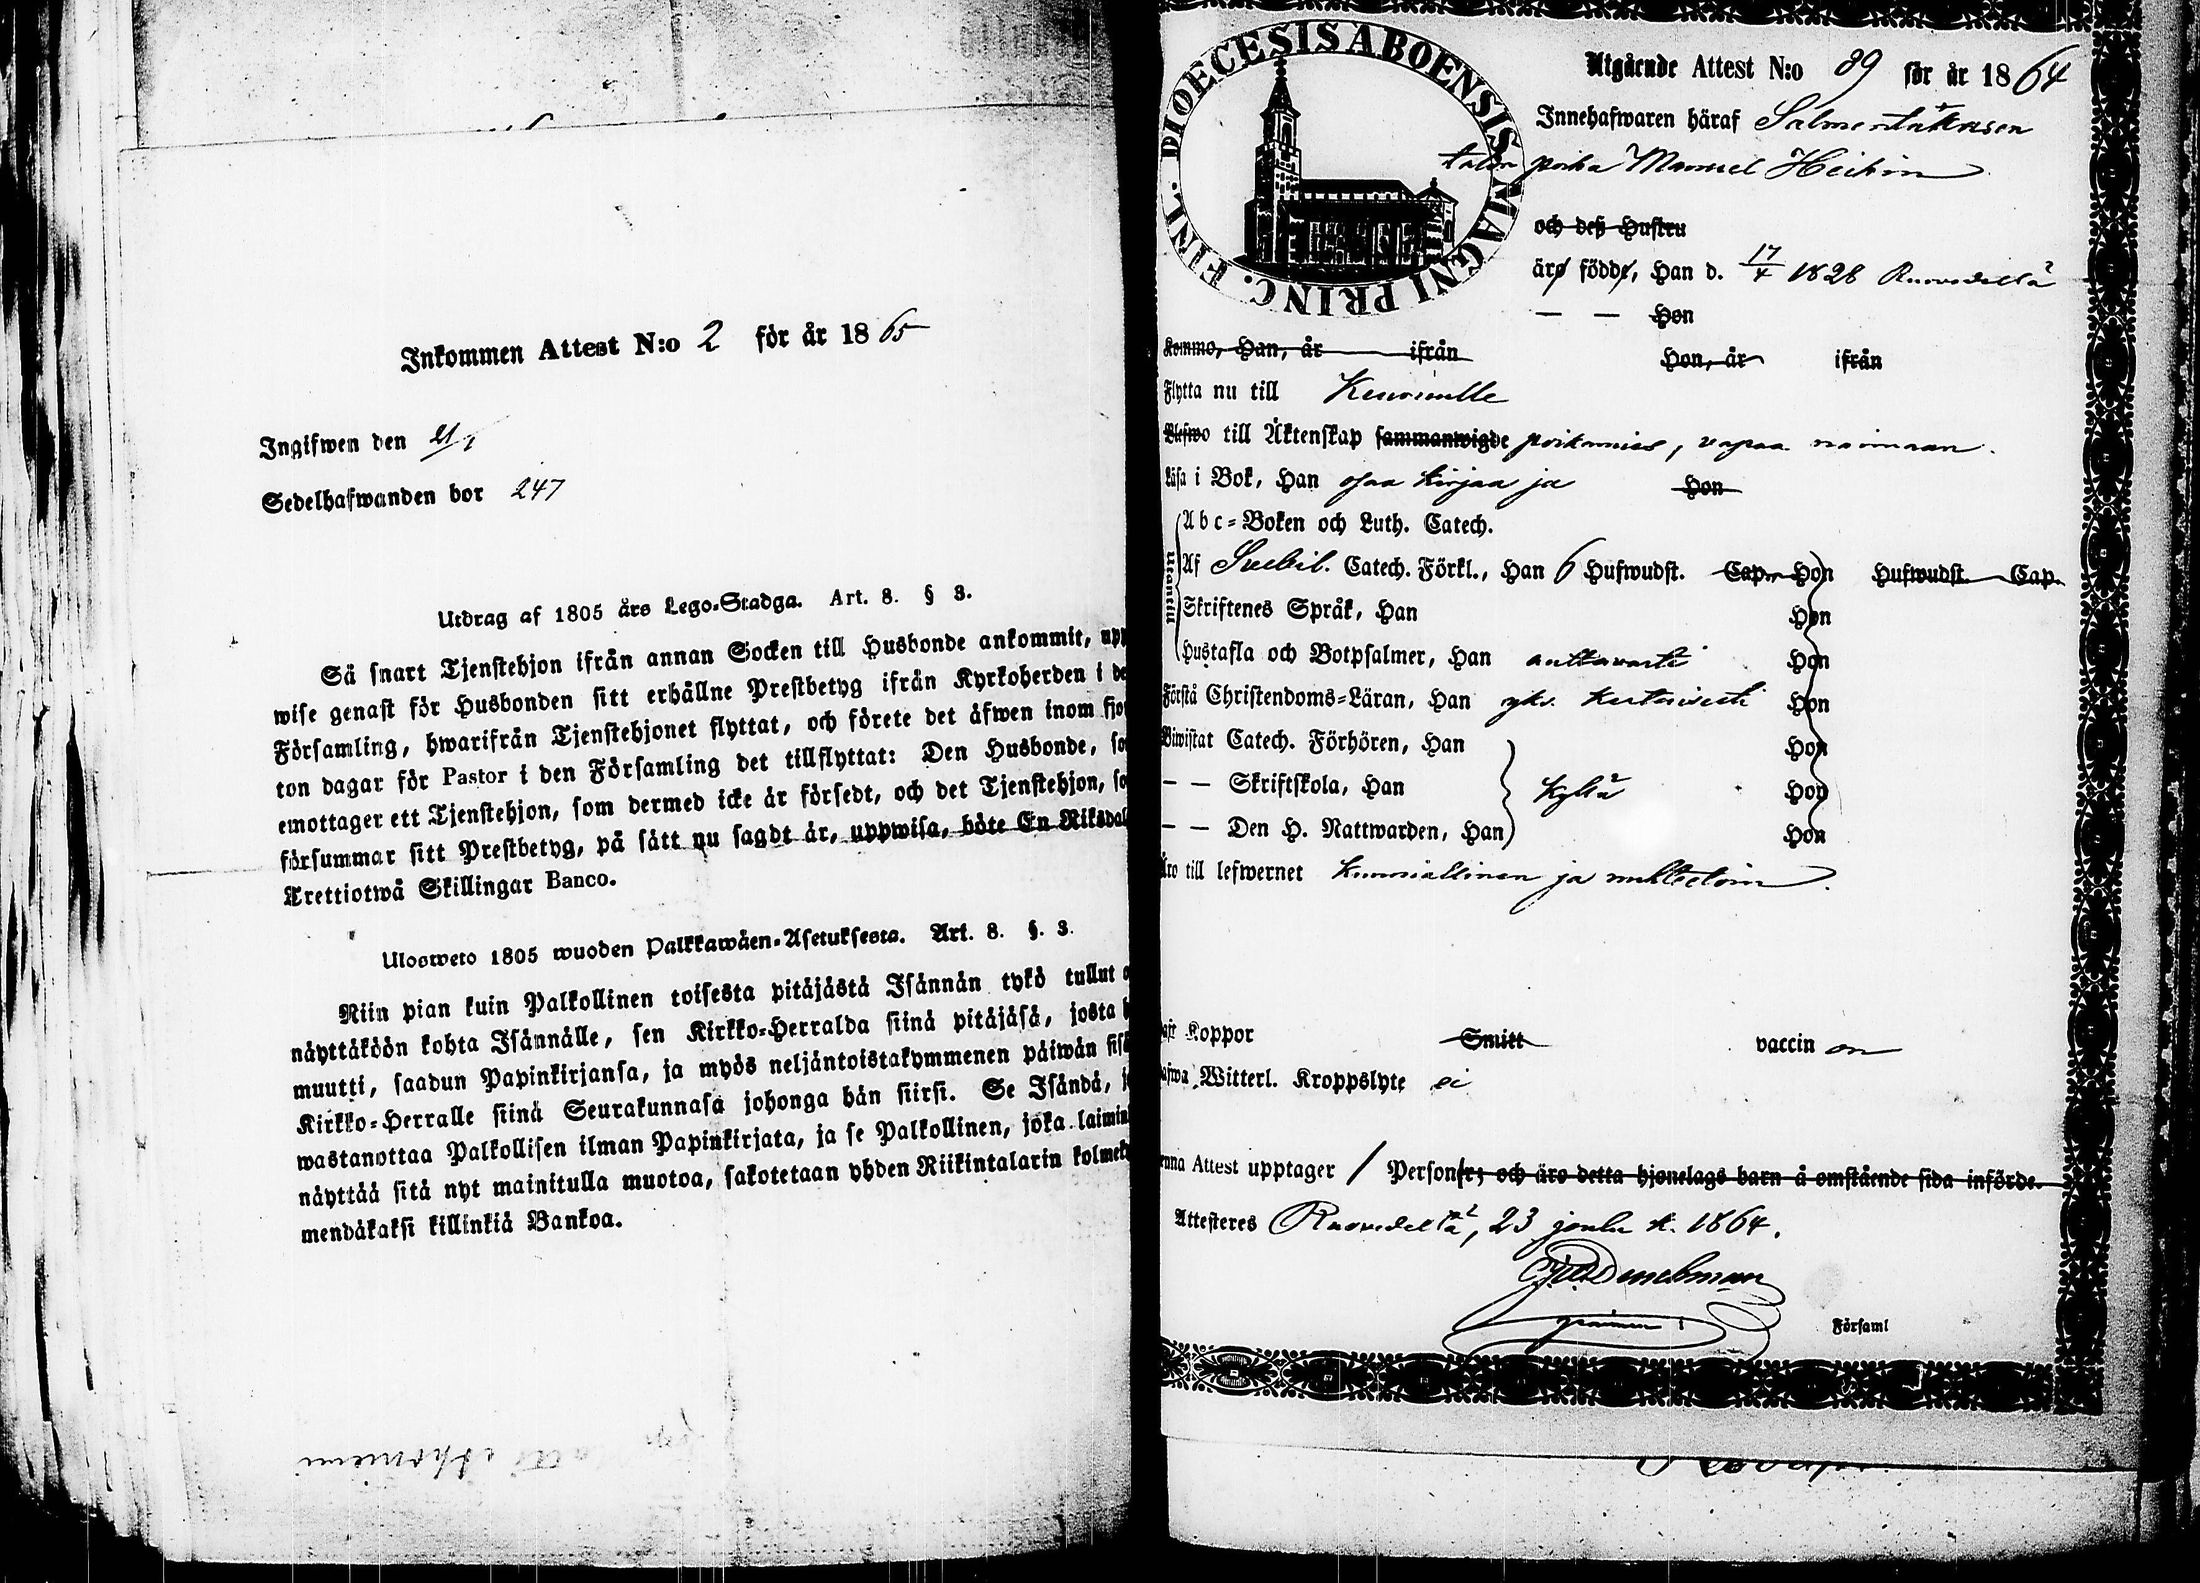 Inkommen Attest N:o 2 för år 1865
Ingifwen den 21/1
Sedelhafwanden bor 247
Utdrag af 1805 års Lego-Stadga. Art. 8. § 3.
Så snart Tjenstehjon ifrån annan Socken till Husbonde ankommit, upp
wise genast för Husbonden sitt erhållne Prestbetyg ifrån Kyrkoherden i de
Församling, hwarifrån Tjenstehjonet flyttat, och förete det äfwen inom fjor
ton dagar för Pastor i den Församling det tillflyttat: Den Husbonde, so
emottager ett Tjenstehjon, som dermed icke är försedt, och det Tjenstehjon, so
försummar sitt Prestbetyg, på sätt nu sagdt är, uppwisa, böte En Riksdal
Trettiotwå Skillingar Banco.
Ulosweto 1805 wuoden Palkkawäen-Asetuksesta. Art. 8. §. 3.
Niin pian kuin Palkollinen toisesta pitäjästä Isännän tykö tullut o
näyttäköön kohta Isännälle, sen Kirkko-Herralda siinä pitäjäsä, josta h
muutti, saadun Papinkirjansa, ja myös neljäntoistakymmenen päiwän sisä
Kirkko-Herralle siinä Seurakunnasa johonga hän siirsi. Se Isändä, j
wastanottaa Palkollisen ilman Papinkirjata, ja se Palkollinen, joka laimin
näyttää sitä nyt mainitulla muotoa, sakotetaan yhden Riikintalarin kolmek
mendäkaksi killinkiä Bankoa.
FINL. DIOECESIS ABOENSIS MAGNI PRINC.
Utgående Attest N:o 89 för år 1864
Innehafwaren häraf
talon poika Manuel Heikin
och deß Hustru
äro födde, Han d. 17/4 1828 Ruovedellä
— — Hon
Kommo, Han, år ifrån Hon, år ifrån
Flytta nu till Keuruulle
Lefwo till Äktenskap sammanwigde poikamies, vapaa naimaan.
Läsa i Bok, Han osaa kirjaa ja Hon
Utantill
Abc-Boken och Luth. Catech.
Af Svebil. Catech. Förkl., Han 6 Hufwudst. Cap. Hon Hufwudst. Cap.
Skriftenes Språk, Han Hon
Hustafla och Botpsalmer, Han auttavasti Hon
Förstå Christendoms-Läran, Han yks. kertaisesti Hon
Biwistat Catech. Förhören, Han Hon
— — Skriftskola, Han kyllä Hon
— — Den H. Nattwarden, Han Hon
Äro till lefwernet kunniallinen ja nuhteetoin.
Koppor Smitt vaccin on
Witterl. Kroppslyte ei
enna Attest upptager 1 Personer; och äro detta hjonelags barn å omstående sida införde.
Attesteres Ruovedellä, 23 joulu k. 1864.
Församl